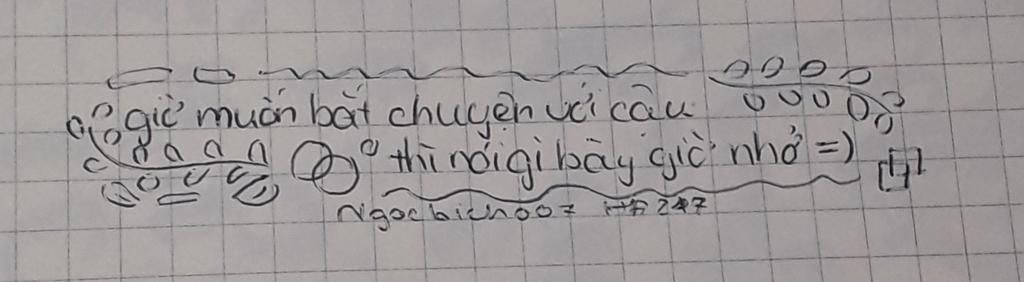 giờ muốn bắt chuyện với cậu
thì nói gì bây giờ nhở =)
Ngocbich007